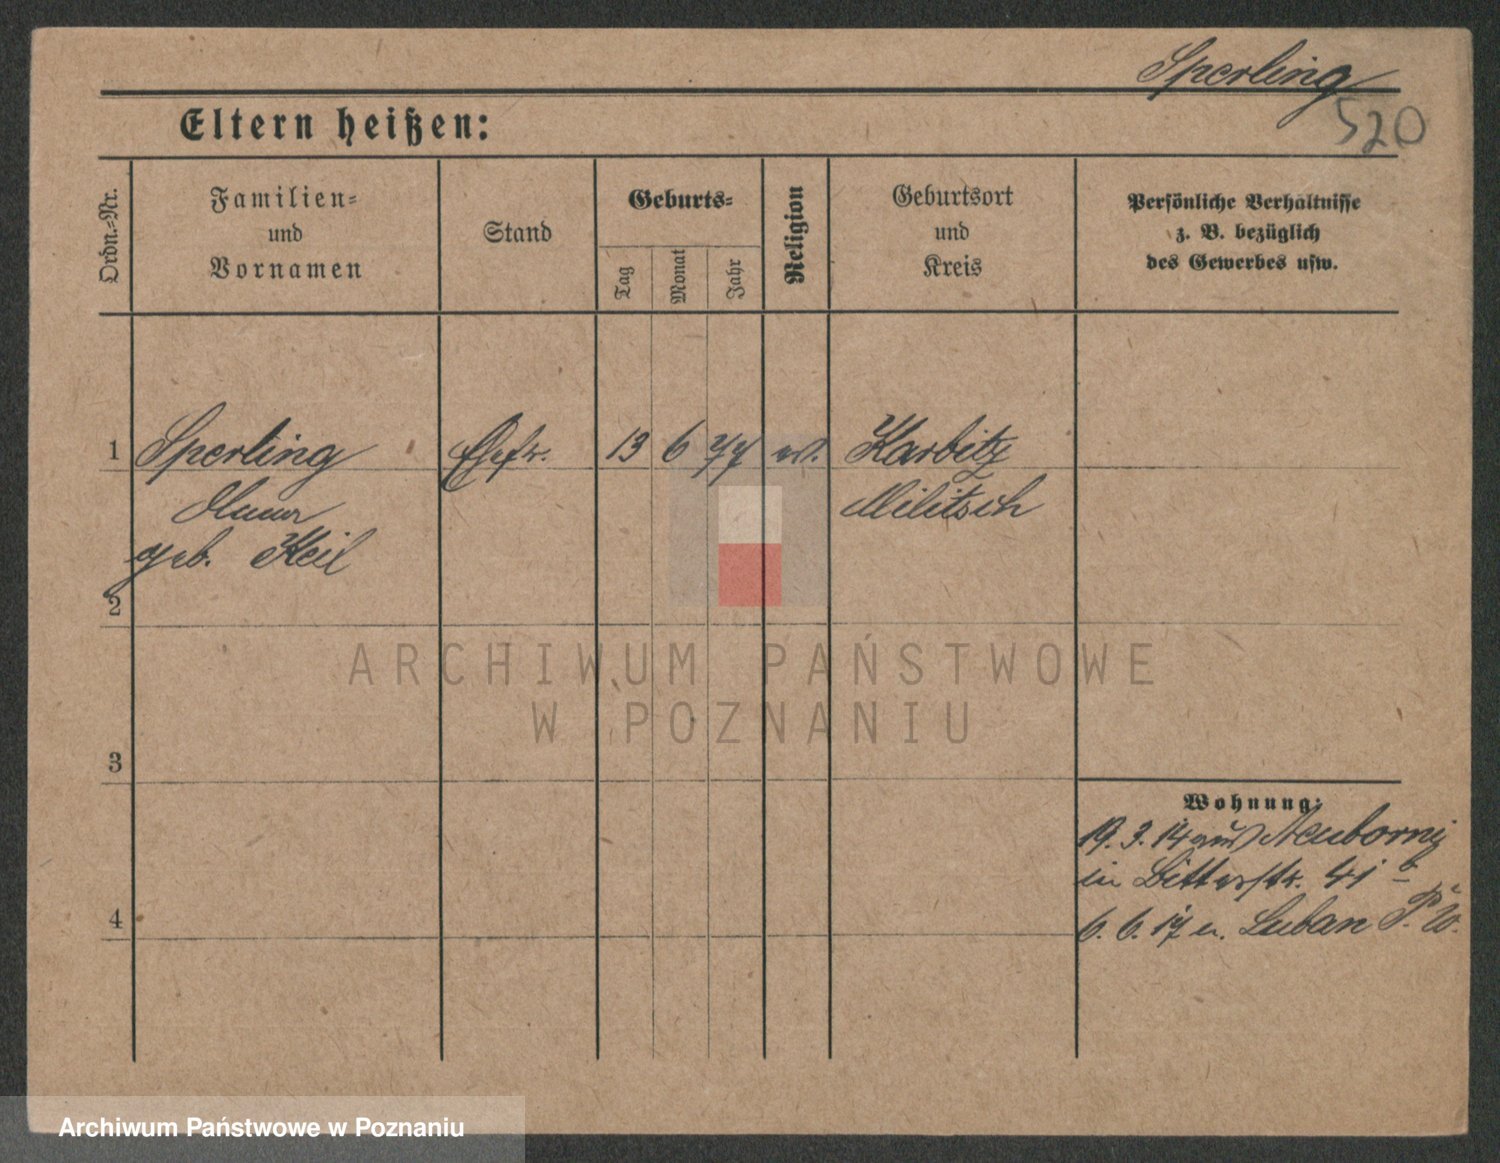 Sperling
520
Eltern heißen:
Ordn.-Nr.
Familien-
und
Vornamen
Stand
Geburts-
Tag
Monat
Jahr
Religion
Geburtsort
und
Kreis
Persönliche Verhältnisse
z. B. bezüglich
des Gewerbes usw.
1 Sperling Ehefr. 13 6 77 ev. Karbitz
Militsch
geb. Keil
2
3
Wohnung:
19. 3. 14 aus
in Bitterstr. 41 b
4
6. 6. 17 n. Luban P. W.
ARCHIWUM PAŃSTWOWE
W POZNANIU
Archiwum Państwowe w Poznaniu